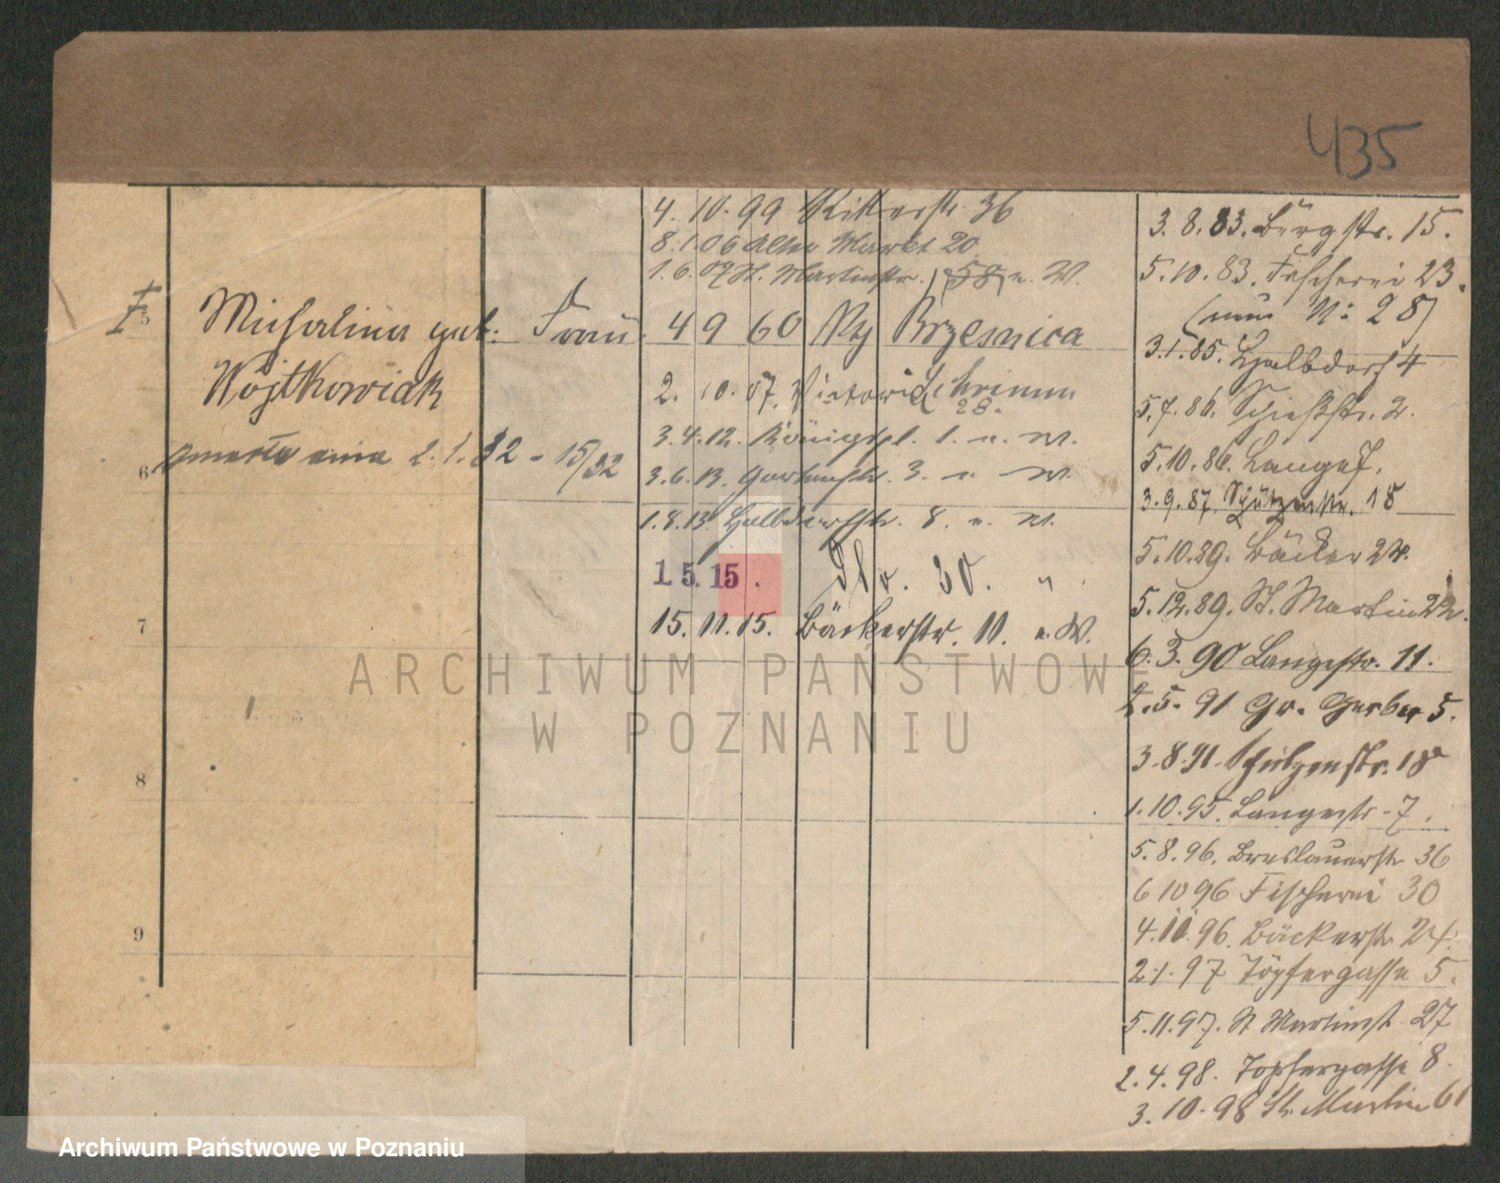 435
5
Michalina geb. Frau
Wojtkowiak
zmarła dnia 2.1.32 - 15/32
6
7
8
9
4. 10. 99 Ritterstr. 36
8.1.06 Alter Markt 20
1.6.07 St. Martinstr. 58 u. W.
4 9 60 Brzesnica
2. 10. 07. Victoria
28.
3.4.12. Königspl. 1. u. W.
3.6.13. Gartenstr. 3. u. W.
1.8.13. Halbdorfstr. 8. u. W.
1. 5. 15. 30. "
15. 11. 15. Bäckerstr. 11. u. W.
3. 8. 83. Bergstr. 15.
5. 10. 83. Fischerei 23.
(nun N: 28)
3.1.85. Halbdorf 4
5.7.86. Schießstr. 2.
5.10.86. Langes.
3.9.87. Schützenstr. 18
5.10.89. Bäcker 24.
5.12.89. St. Martin 22.
6. 3. 90 Langestr. 11.
2. 5. 91 Gr. Gerber 5.
3.8.91. Schützenstr. 18a
1.10.95. Langestr. 7.
5. 8. 96. Breslauerstr. 36
6 10 96 Fischerei 30
4. 11. 96. Bäckerstr. 24.
2.1.97 Töpfergasse 5.
5.11.97. St Martinst. 27
2.4.98. Töpfergasse 8.
3. 10. 98 St. Martin 61
ARCHIWUM PAŃSTWOWE
W POZNANIU
Archiwum Państwowe w Poznaniu